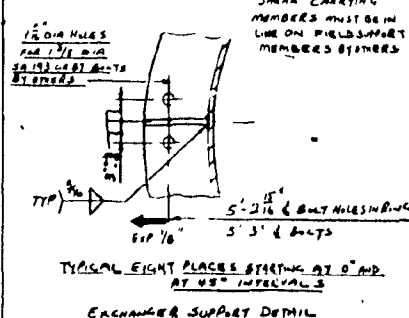 SHEAR CARRYING
MEMBERS MUST BE IN
LINE ON FIELD SUPPORT
MEMBERS BY OTHERS
DIA HOLES
FOR 1 1/8 DIA
SA 193 GR B7 BOLTS
BY OTHERS
TYP
EXP 1/8"
5'-2 15/16" ₵ BOLT HOLES IN RING
5' 3" ₵ BOLTS
TYPICAL EIGHT PLACES STARTING AT 0° AND
AT 45° INTERVALS
EXCHANGER SUPPORT DETAIL